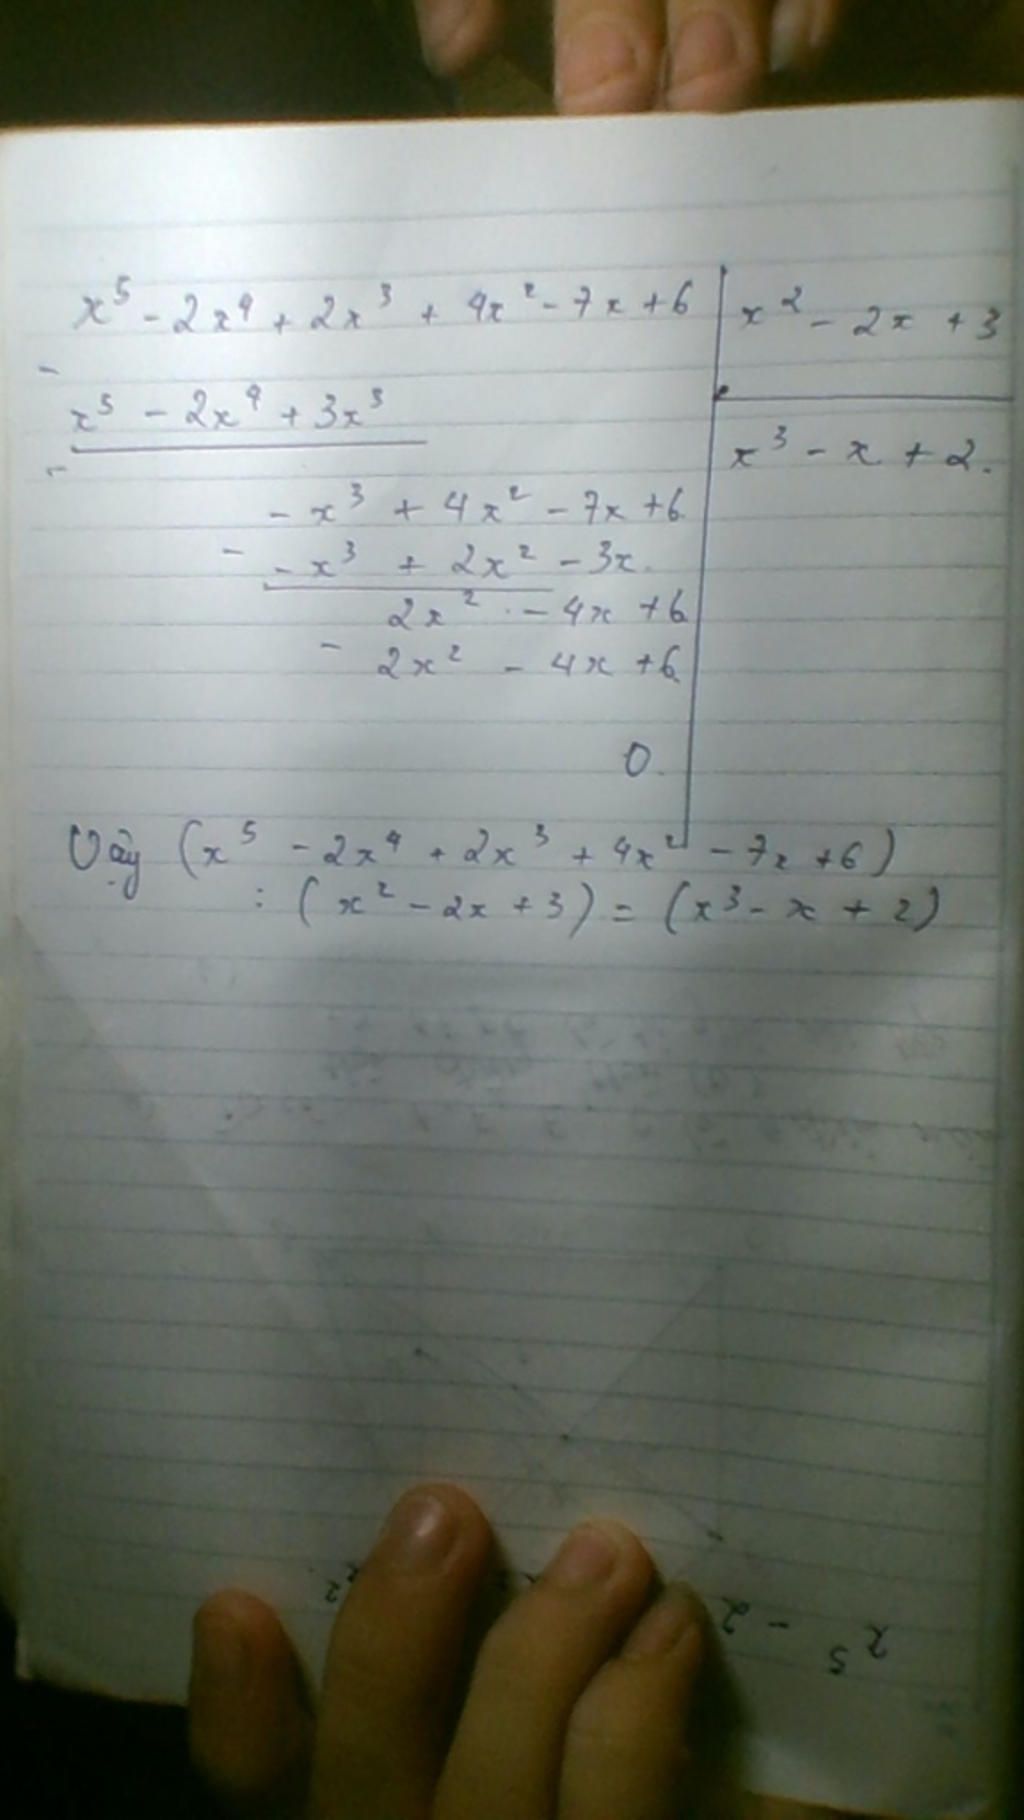 x⁵ - 2x⁴ + 2x³ + 4x² - 7x + 6 | x² - 2x + 3
-
x⁵ - 2x⁴ + 3x³ | x³ - x + 2.
-
- x³ + 4x² - 7x + 6
- - x³ + 2x² - 3x.
2x² - 4x + 6
- 2x² - 4x + 6
0.
Vậy (x⁵ - 2x⁴ + 2x³ + 4x² - 7x + 6)
: (x² - 2x + 3) = (x³ - x + 2)
x⁵ - 2